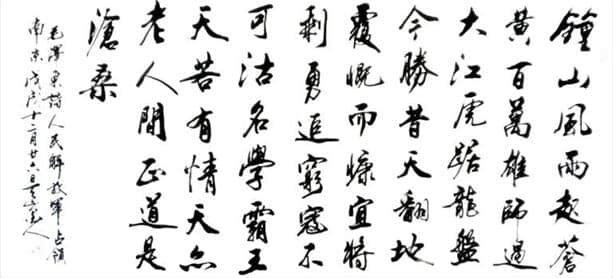 鐘山風雨起蒼
黃百萬雄師過
大江虎踞龍盤
今勝昔天翻地
覆慨而慷宜將
剩勇追窮寇不
可沽名學霸王
天若有情天亦
老人間正道是
滄桑
毛澤東詩人民解放軍占領
南京戊戌十二月廿六日